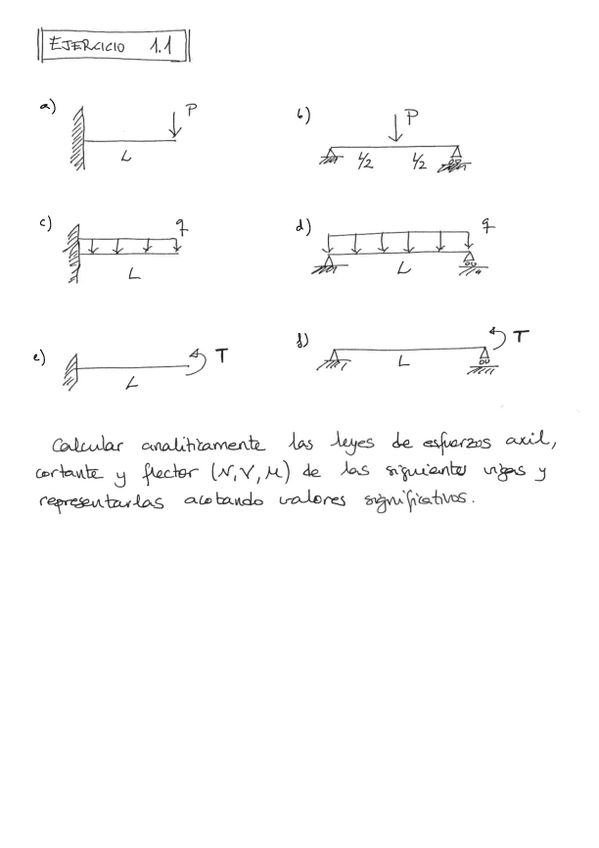 EJERCICIO 1.1
a) P
L
b) P
L/2 L/2
c) q
L
d) q
L
e) T
L
f) T
L
Calcular analíticamente las leyes de esfuerzos axil,
cortante y flector (N,V,M) de las siguientes vigas y
representarlas acotando valores significativos.